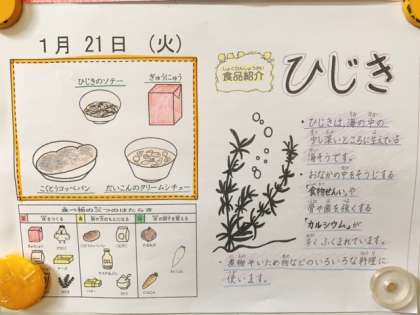 1月21日（火）
ひじきのソテー
ぎゅうにゅう
こくとうコッペパン
だいこんのクリームシチュー
食品紹介
ひじき
・ひじきは、海の中の
少し深いところに生えている
海そうです。
・おなかの中をそうじする
「食物せんい」や
骨や歯を強くする
「カルシウム」が
多くふくまれています。
・煮物やいため物などのいろいろな料理に
使います。
食べ物の三つのはたらき